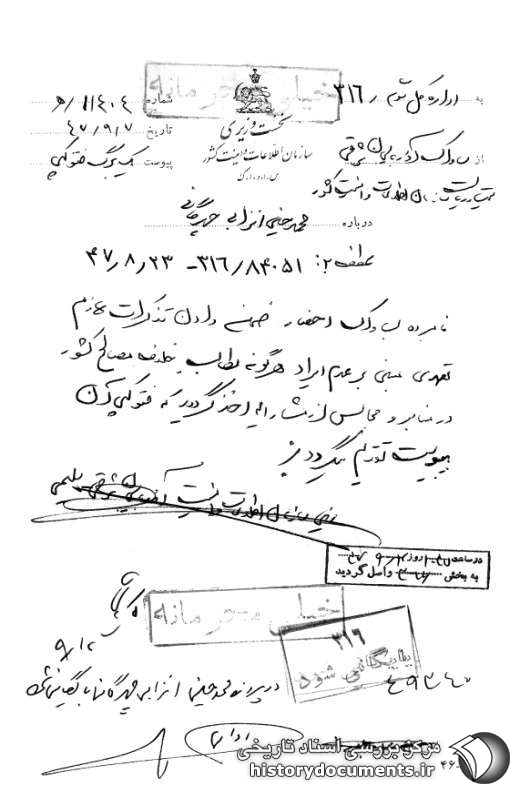 خیلی محرمانه
به اداره کل سوم ۳۱۶
شماره ۱۱۴۰۴/ه
نخست وزیری
تاریخ ۴۷/۹/۷
سازمان اطلاعات و امنیت کشور
از ساواک آذربایجان شرقی
س.ا.و.ا.ک
پیوست یک برگ فتوکپی
ریاست سازمان اطلاعات و امنیت کشور
درباره محمدحسین انزابی چهرگانی
عطف به: ۳۱۶/۸۴۰۵۱ - ۴۷/۸/۲۳
نامبرده به ساواک احضار ضمن دادن تذکرات لازم
تعهدی مبنی بر عدم ایراد هرگونه مطالب خلاف مصالح کشور
در منابر و مجالس از مشارالیه اخذ گردید که فتوکپی آن
بپیوست تقدیم میگردد
رئیس سازمان اطلاعات و امنیت آذربایجان شرقی
در ساعت روز
به بخش واصل گردید
خیلی محرمانه
۹/۱۲
۳۱۶
بایگانی شود
در پرونده محمدحسین انزابی چهرگانی بایگانی شود
۴۹۳۴۰
مرکز بررسی اسناد تاریخی
historydocuments.ir